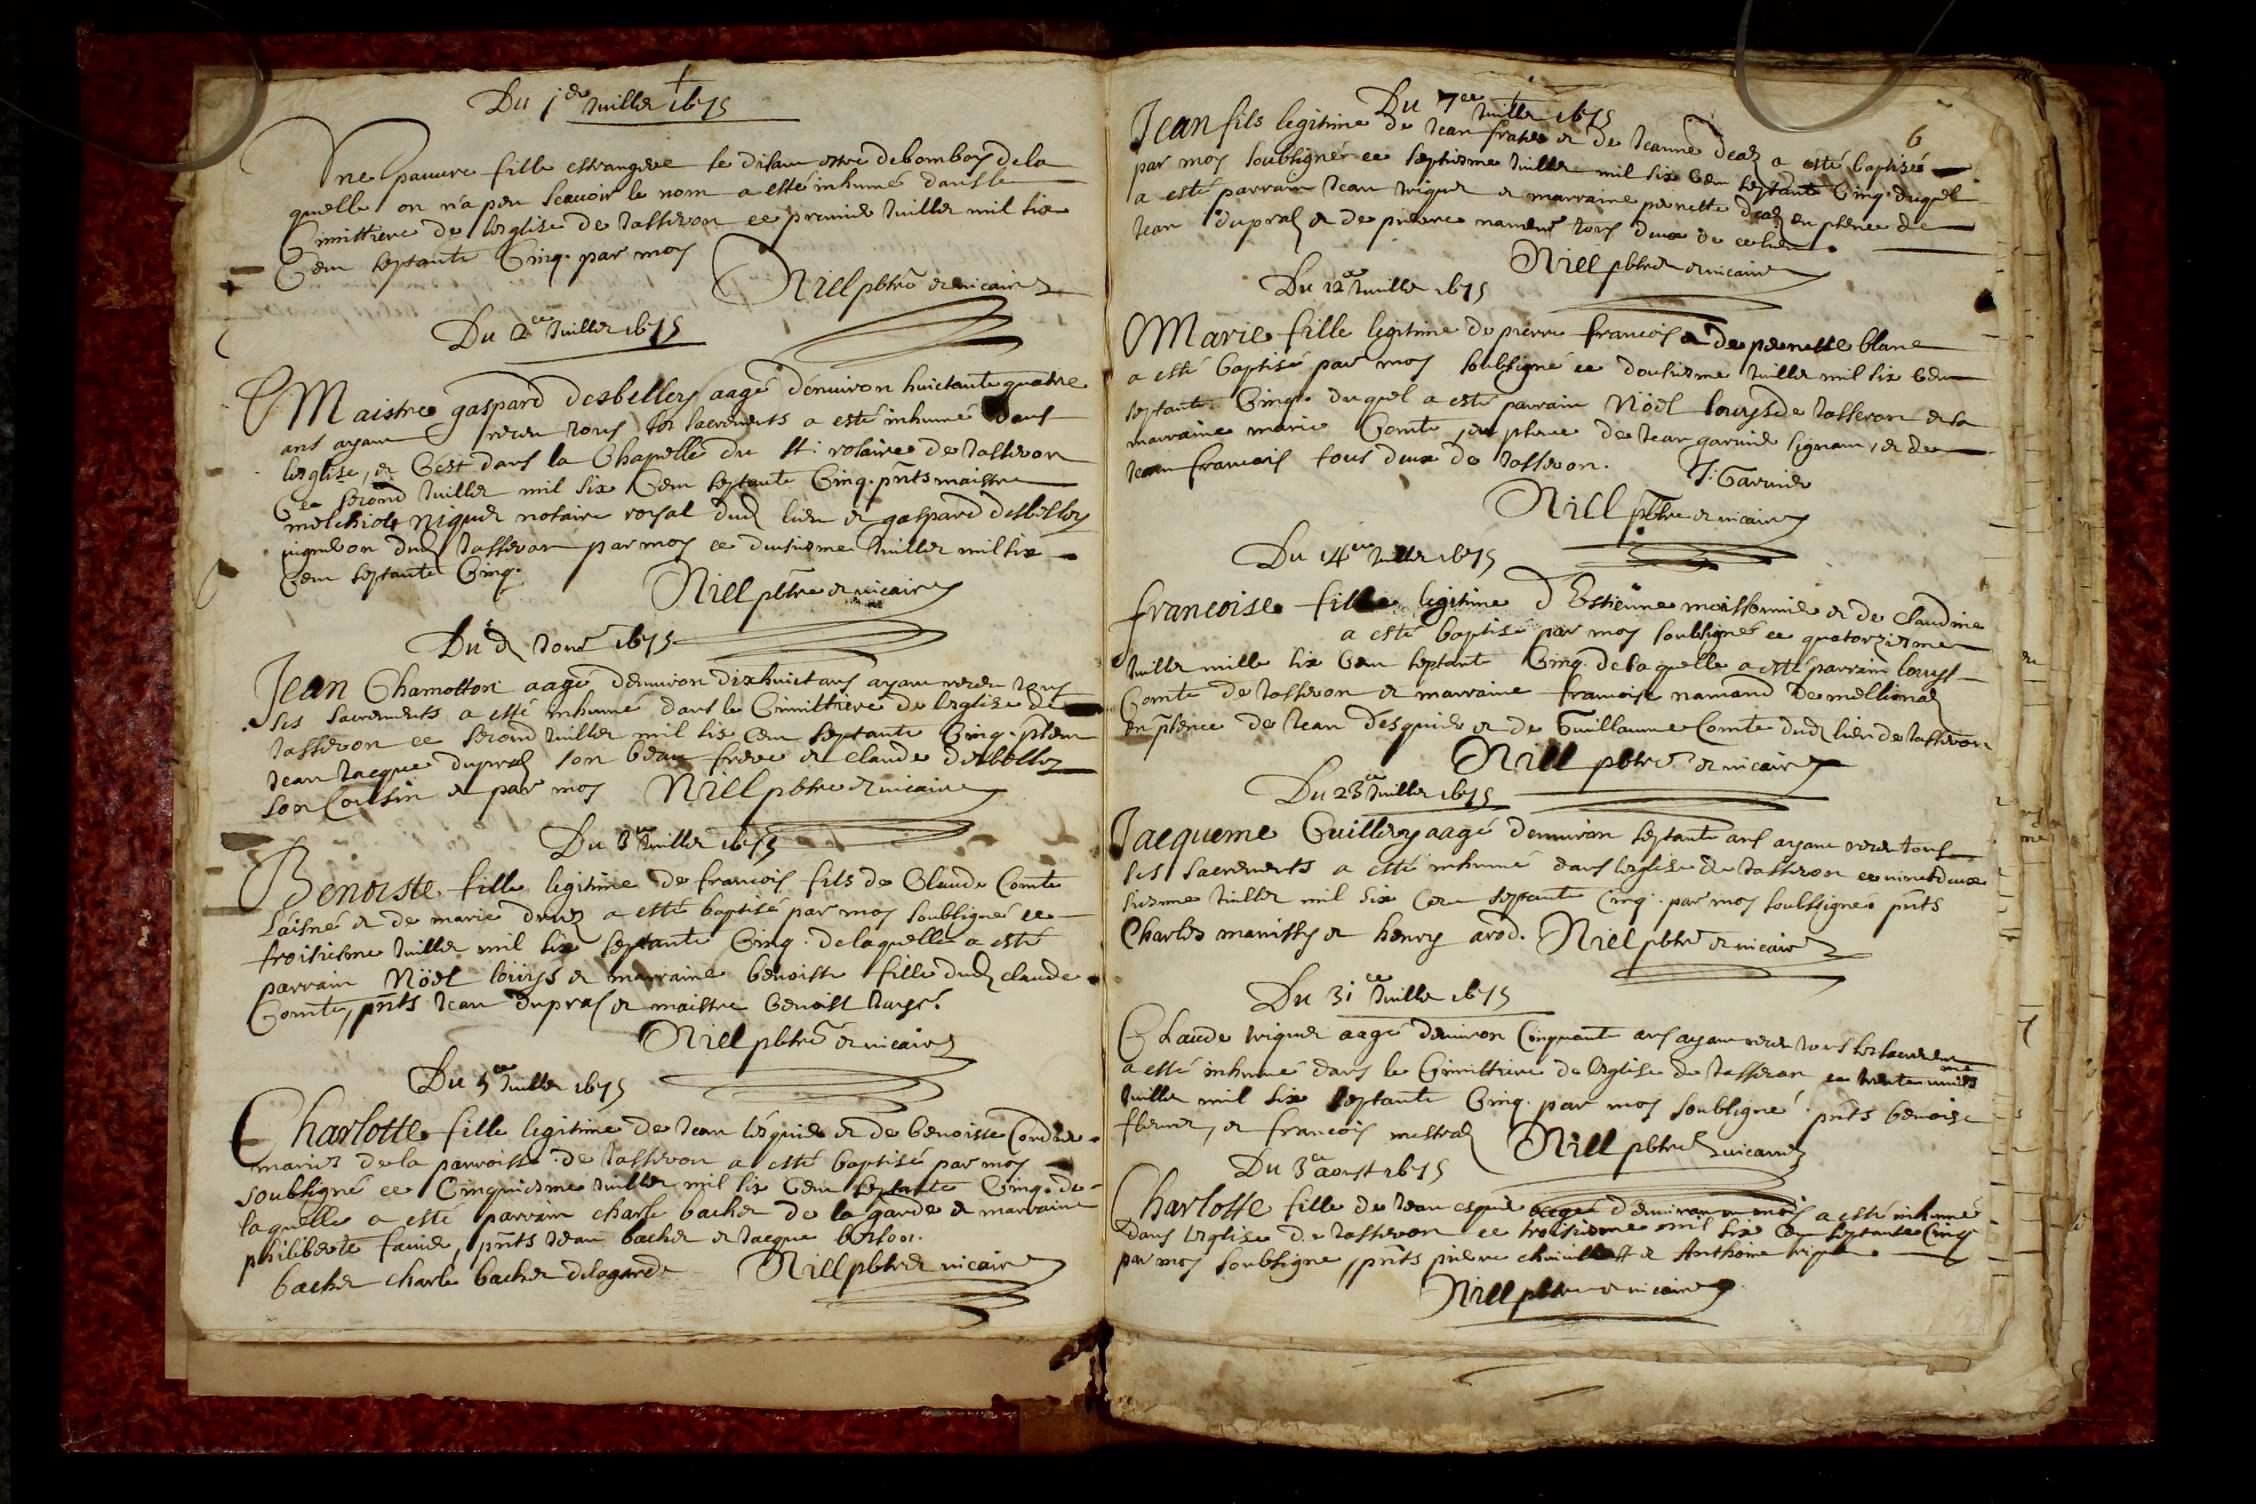 Du 1er Juillet 1675
Une pauvre fille estrangere se disant estre de bomboy de la
quelle on n'a peu scavoir le nom a esté inhumé dans le
Cimittiere de l'eglise de tasseron ce premier Juillet mil six
Cent septante Cinq. par moy
Niell pbtre et vicaire
Du 2e Juillet 1675
Maistre gaspard desbelley aagé d'enuiron huictante quatre
ans ayant receu tous les sacrements a esté inhumé dans
l'eglise, et c'est dans la Chapelle du st rosaire de tasseron
Ce second Juillet mil six Cent septante Cinq. pnts maistre
melchiol niquet notaire royal dud lieu et gaspard desbelley
vigneron dud tasseron par moy ce deusiesme Juillet mil six
Cent septante Cinq.
Niell pbtre et vicaire
Du d Jour 1675
Jean Chamotton aagé d'enuiron dixhuict ans ayant receu tous
ses sacrements a esté inhumé dans le Cimittiere de l'eglize de
tasseron ce second Juillet mil six cent septante Cinq. pntem
Jean Jacque dupraz son beau frere et claude desbelley
son Cousin et par moy Niell pbtre et vicaire
Du 3e Juillet 1675
Benoiste fille legitime de francois fils de Claude Comte
L'aisné et de marie a esté baptisé par moy soubsigné ce
troisiesme Juillet mil six septante Cinq. de laquelle a esté
parrain Nöel loüys et marraine benoiste fille dud claude
Comte, pnts Jean dupraz et maistre benoist
Niell pbtre et vicaire
Du 5e Juillet 1675
Charlotte fille legitime de Jean l'esquier et de benoisse
mariez de la parroisse de tasseron a esté baptisé par moy
soubsigné ce Cinquiesme Juillet mil six Cent septante Cinq. de
laquelle a esté parrain charle bachet de la garde et marraine
philiberte favier, pnts Jean bachet et Jacque berlon.
bachet charle bachet delagarde Niell pbtre et vicaire
6
Du 7e Juillet 1675
Jean fils legitime de Jean frater et de Jeanne deaz a esté baptizé
par moy soubsigné ce septiesme Juillet mil six Cent septante Cinq. duquel
a esté parrain Jean triquet et marraine pernette deaz en pnence de
Jean dupraz et de pierre tous deux de ce lieu.
Niell pbtre et vicaire
Du 12e Juillet 1675
Marie fille legitime de pierre francois et de pernette blanc
a esté baptisé par moy soubsigné ce dousiesme Juillet mil six Cent
septante Cinq. duquel a esté parrain Nöel louys de tasseron et la
marraine marie Comte, en pnence de Jean garnier signant, et de
Jean francois tous deux de tasseron. J. Garnier
Niell pbtre et vicaire
Du 14e Juillet 1675
francoise fille legitime d'Estiene moissonnier et de claudine
a esté baptisé par moy soubsigné ce quatorziesme
Juillet mille six Cent septante Cinq. de laquelle a esté parrain louys
Comte de tasseron et marraine francoise namand de mellionaz
en pnence de Jean desquier et de Guillaume Comte dud lieu de tasseron
Niell pbtre et vicaire
Du 23e Juillet 1675
Jacqueme Guillery aagé d'enuiron septante ans ayant receu tous
ses sacrements a esté inhumé dans l'eglise de tasseron ce vinct deux
siesme Juillet mil six Cent septante Cinq. par moy soubsigné pnts
Charles manissy et henry arod. Niell pbtre et vicaire
Du 31e Juillet 1675
Claude triquet aagé d'enuiron Cinquante ans ayant receu tous les sacrements
a esté inhumé dans le Cimittiere de l'eglise de tasseron ce trente uniesme
Juillet mil six septante Cinq. par moy soubsigné. pnts benoist
et francois mestraz Niell pbtre vicaire
Du 3e aoust 1675
Charlotte fille de Jean esquier aagée d'enuiron un mois a esté inhumé
dans l'eglise de tasseron ce troisiesme mil six Cent septante Cinq
par moy soubsigné, pnts pierre et Anthoine
Niell pbtre et vicaire